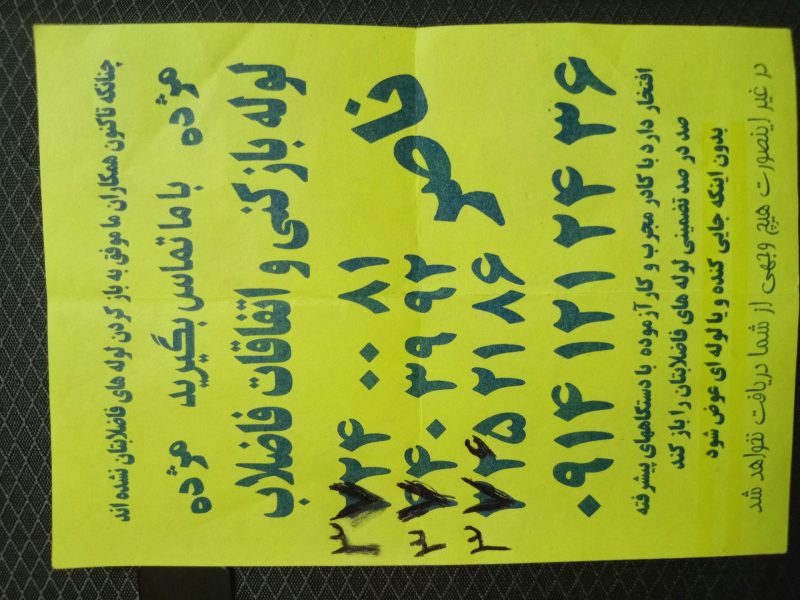 چنانکه تاکنون همکاران ما موفق به باز کردن لوله های فاضلابتان نشده اند
مژده با ما تماس بگیرید مژده
لوله باز کنی و اتفاقات فاضلاب
۳۷۲۴ ۰۰ ۸۱
۳۷۴۰ ۳۹ ۹۲
ناصر
۳۷۶۵ ۲۱ ۸۶
۰۹۱۴ ۱۲۱ ۲۴ ۳۶
افتخار دارد با کادر مجرب و کار آزموده با دستگاههای پیشرفته
صد در صد تضمینی لوله های فاضلابتان را باز کند
بدون اینکه جایی کنده و یا لوله ای عوض شود
در غیر اینصورت هیچ وجهی از شما دریافت نخواهد شد